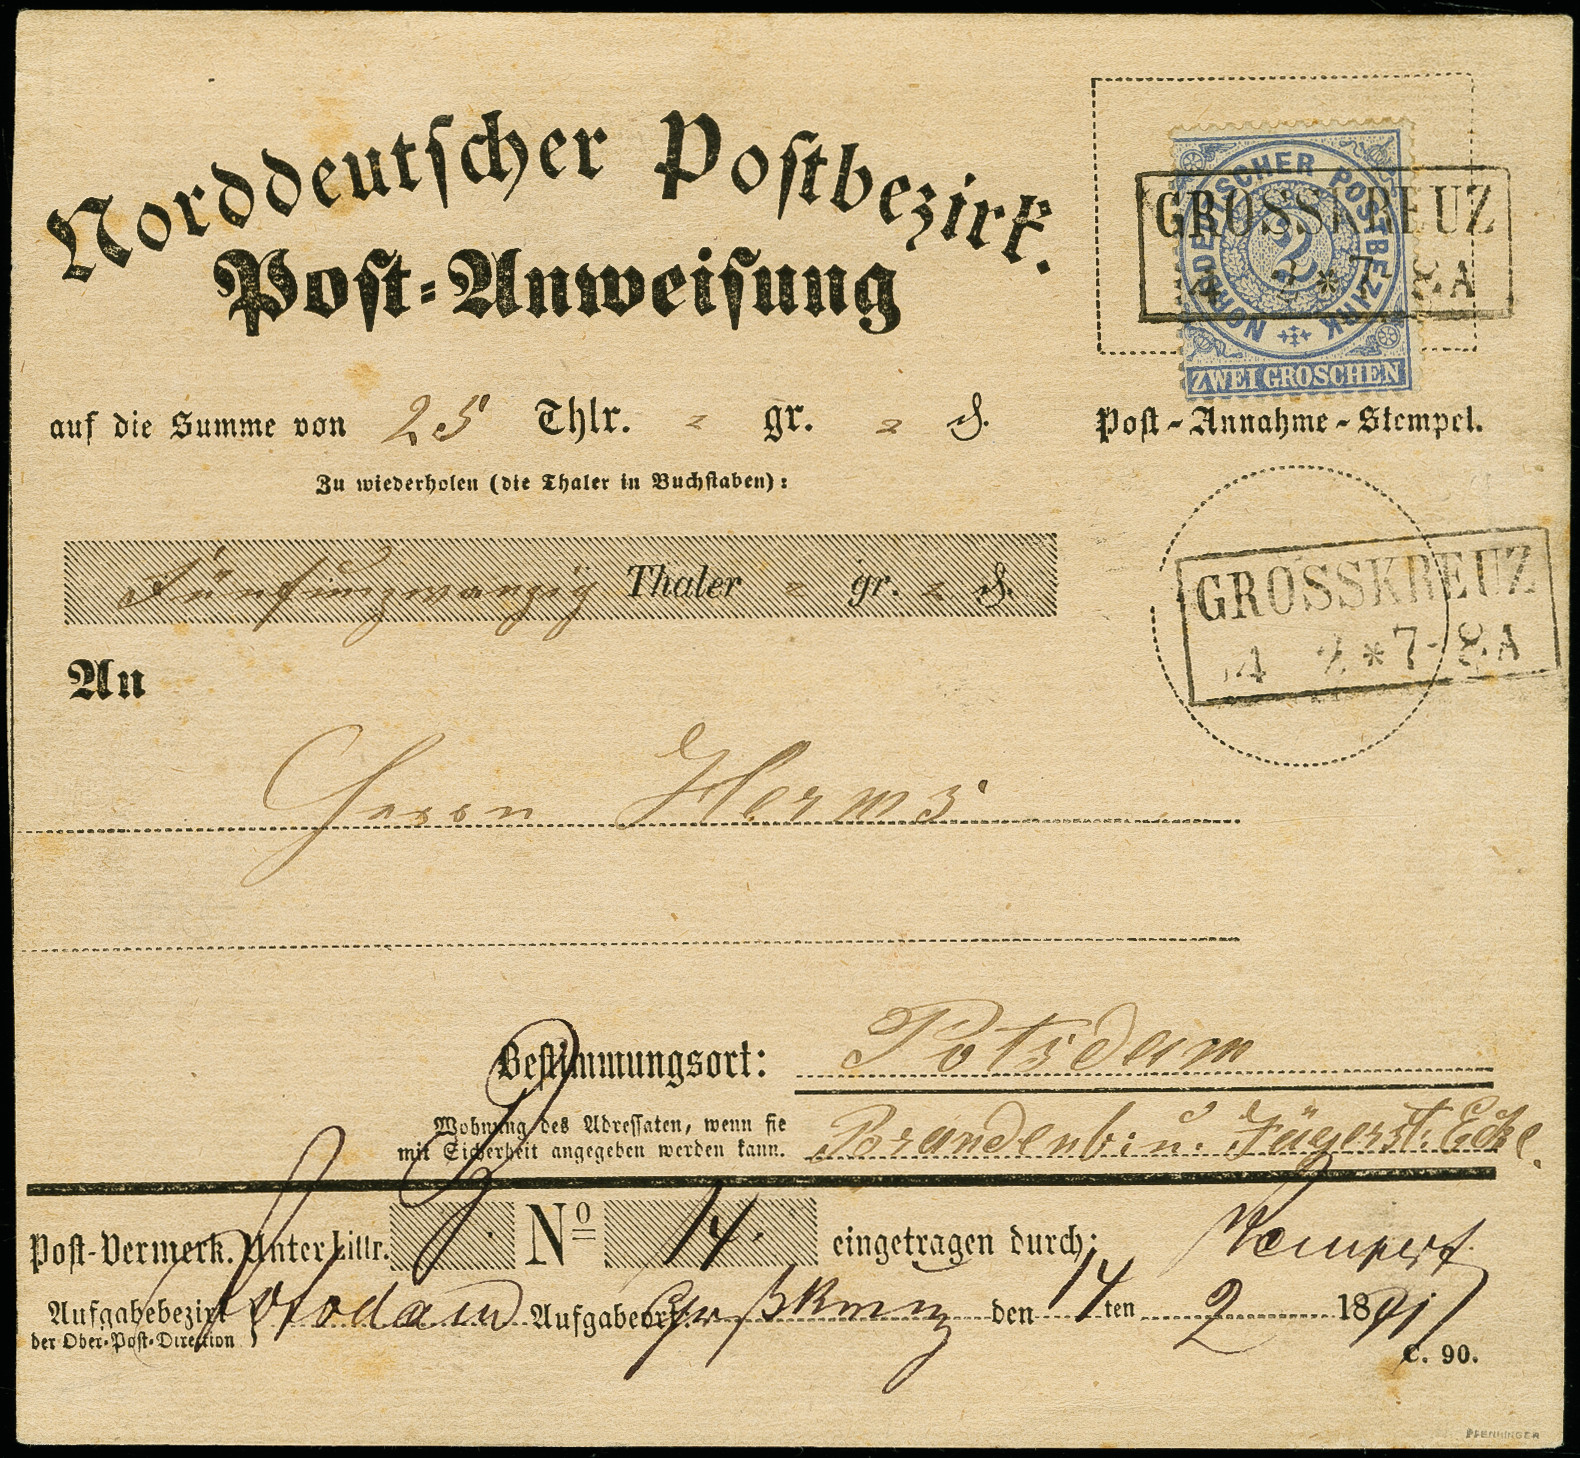 Norddeutscher Postbezirk.
Post-Anweisung
NORDDEUTSCHER POSTBEZIRK
2
ZWEI GROSCHEN
GROSSKREUZ
14 2 * 7-8 A
auf die Summe von 25 Thlr. = gr. = ₰.
Post-Annahme-Stempel.
Zu wiederholen (die Thaler in Buchstaben):
Fünfundzwanzig Thaler = gr. = ₰.
GROSSKREUZ
14 2 * 7-8 A
An
Herrn Herms
Bestimmungsort: Potsdam
Wohnung des Adressaten, wenn sie
mit Sicherheit angegeben werden kann.
Brandenb: u. Jägerst. Ecke.
Post-Vermerk. Unter Littr. No 14. eingetragen durch:
Aufgabebezirk Potsdam Aufgabeort: Großkreuz den 14ten 2 1871
der Ober-Post-Direction
C. 90.
PFENNINGER